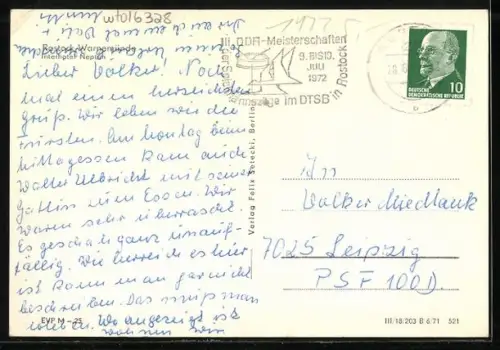 wfo16328
1977
Rostock-Warnemünde
Interhotel Neptun
Lieber Volker! Noch
mal einen herzlichen
Gruß. Wir leben wie die
Fürsten. Am Montag beim
Mittagessen kam auch
Walter Ulbricht mit seiner
Gattin zum Essen. Wir
waren sehr überrascht.
Es geschah ganz unauf-
fällig. Wie herrlich es hier
ist kann man gar nicht
beschreiben. Das muß man
erleben. Wo angezeigt ist
wohnen wir
EVP M -,25
Verlag Felix Setecki, Berlin
III. DDR-Meisterschaften
9. BIS 10.
JULI
1972
im DTSB in Rostock
DEUTSCHE
DEMOKRATISCHE REPUBLIK
10
An
Volker Miedlank
7025 Leipzig
PSF 100D.
III/18/203 B 6/71 521